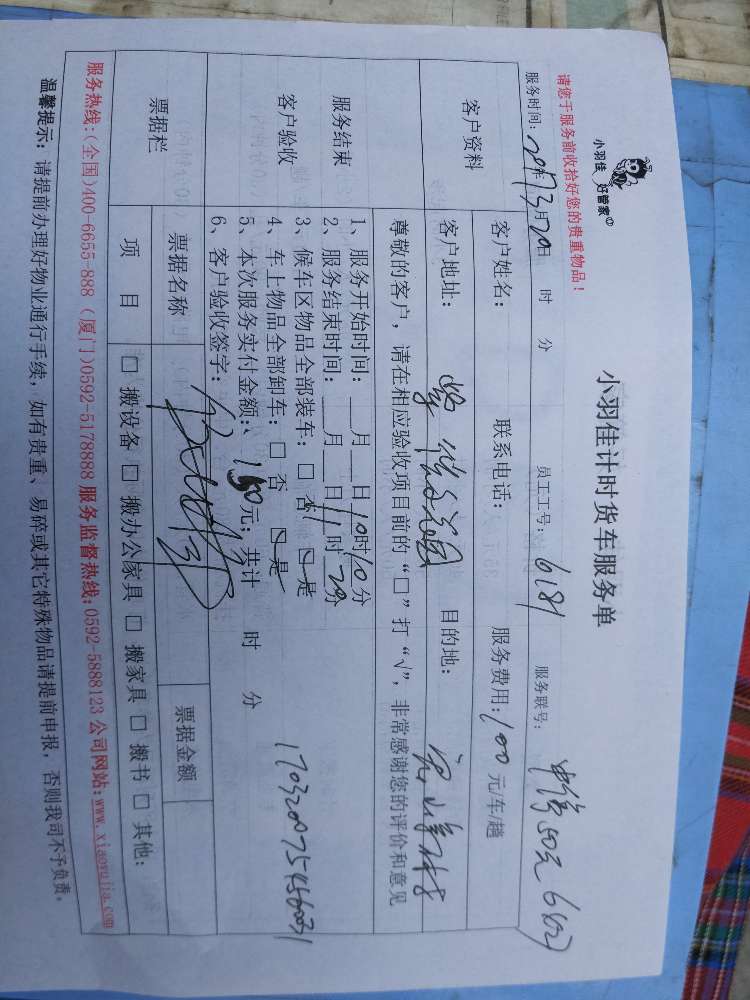 小羽佳 好管家
小羽佳计时货车服务单
请您于服务前收拾好您的贵重物品！
服务时间：2017年3月20日 时 分 员工工号：6181 服务联号：
50元
客户资料
客户姓名： 联系电话： 服务费用：100元/车/趟
客户地址： 目的地：
尊敬的客户，请在相应验收项目前的“□”打“√”，非常感谢您的评价和意见
服务结束
客户验收
1、服务开始时间：__月__日10时10分
2、服务结束时间：__月__日11时20分
3、候车区物品全部装车：□ 否 ☑ 是
4、车上物品全部卸车：□ 否 ☑ 是
5、本次服务实付金额：150元；共计 时 分
6、客户验收签字：
票据栏
票据名称 票据金额
项 目 □ 搬设备 □ 搬办公家具 □ 搬家具 □ 搬书 □ 其他：
服务热线：(全国)400-6655-888 (厦门)0592-5178888 服务监督热线：0592-5888123 公司网站：www.xiaoyujia.com
温馨提示：请提前办理好物业通行手续，如有贵重、易碎或其它特殊物品请提前申报，否则我司不予负责。